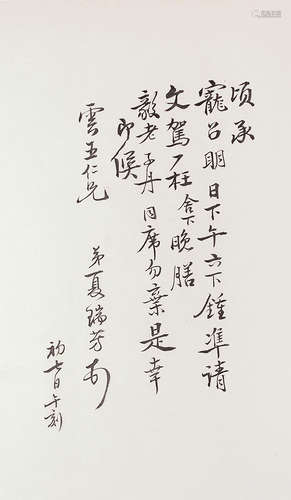 頃承
寵召明日下午六下鍾準請
文駕枉舍下晚膳
毅老子丹同席勿棄是幸
即候
雲五仁兄
弟夏瑞芳
初七日午刻